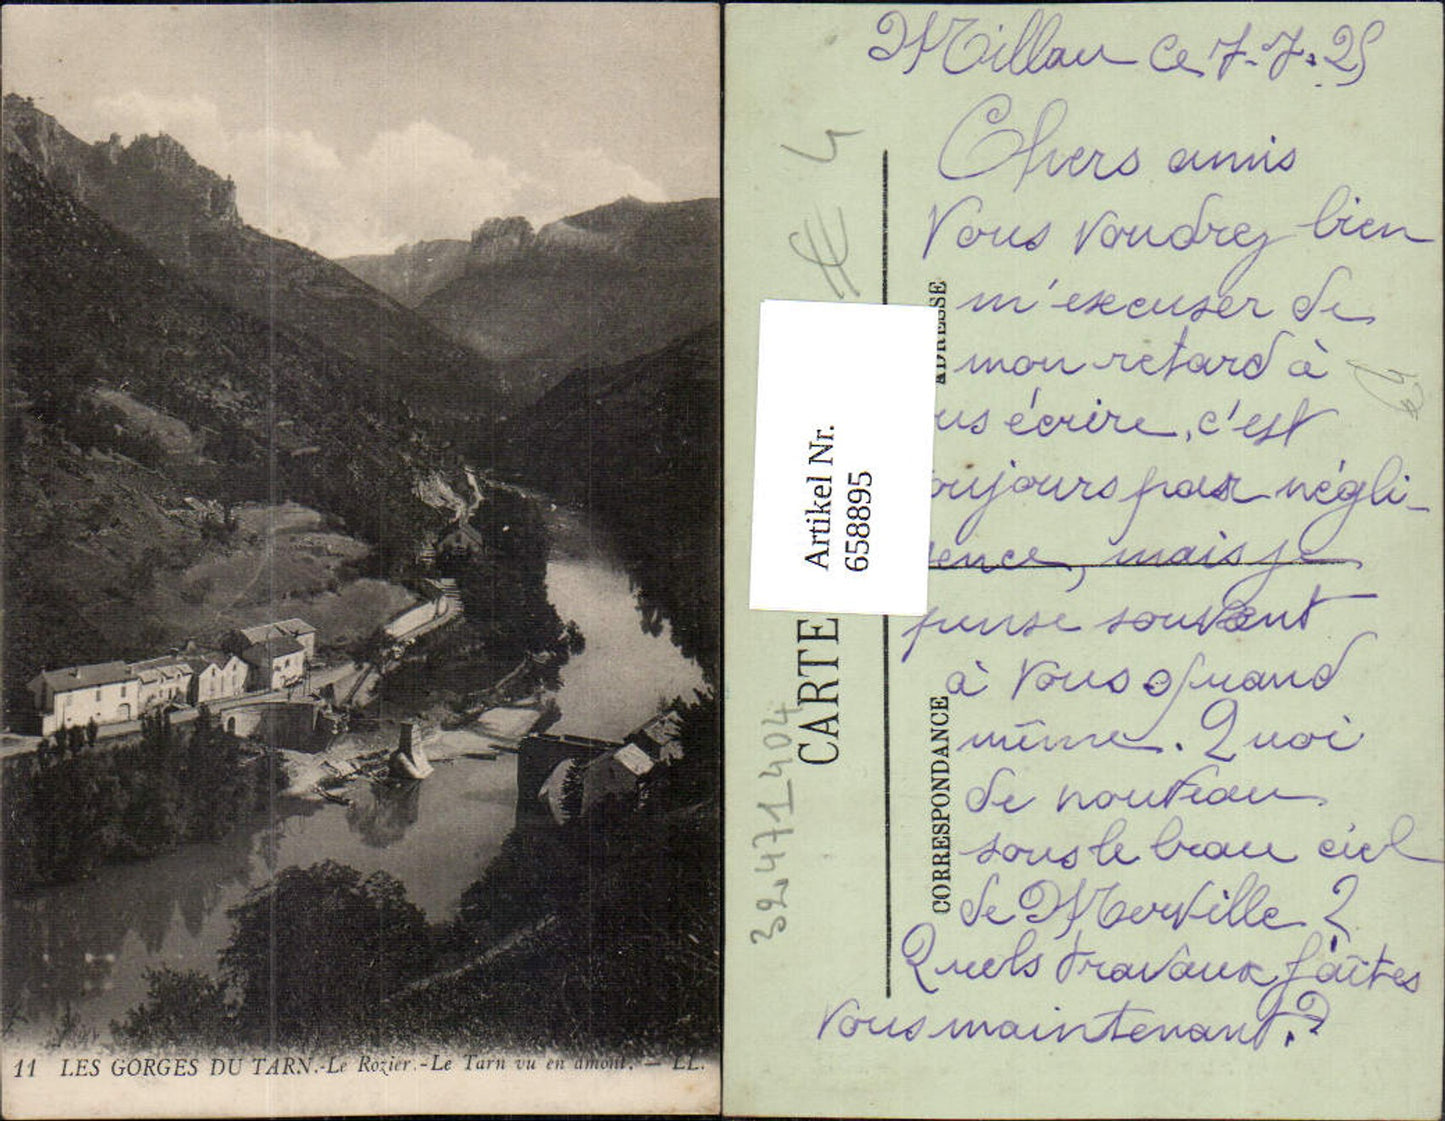 11 LES GORGES DU TARN.-Le Rozier.-Le Tarn vu en amont. — LL.
Millau ce 7-7-25
Chers amis
Vous voudrez bien
m'excuser de
mon retard à
us écrire, c'est
oujours par négli-
ence, mais je
pense souvent
à vous quand
même. Quoi
de nouveau
sous le beau ciel
de Merville ?
Quels travâux fâîtes
vous maintenant ?
ADRESSE
CORRESPONDANCE
CARTE
Artikel Nr.
658895
32471404